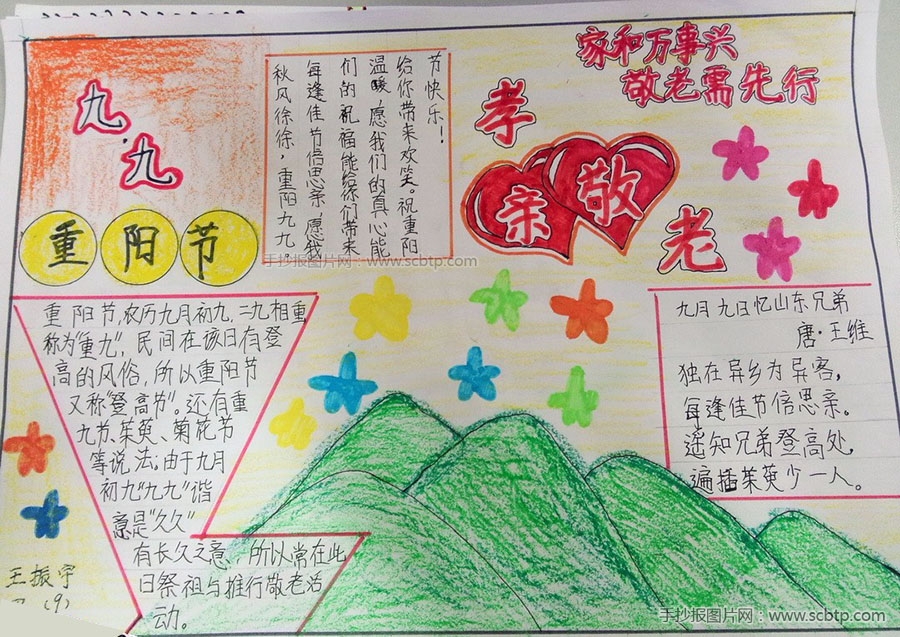 九九
重阳节
秋风徐徐，重阳九九。
每逢佳节倍思亲 愿我
们的祝福能给你们带来
温暖，愿我们的真心能
给你带来欢笑。祝重阳
节快乐！
家和万事兴
敬老需先行
孝
亲敬
老
手抄报图片网：www.scbtp.com
重阳节,农历九月初九,二九相重
称为"重九",民间在该日有登
高的风俗,所以重阳节
又称"登高节"。还有重
九节、茱萸、菊花节
等说法;由于九月
初九"九九"谐
意是"久久"
有长久之意,所以常在此
日祭祖与推行敬老活
动。
九月九日忆山东兄弟
唐·王维
独在异乡为异客，
每逢佳节倍思亲。
遥知兄弟登高处，
遍插茱萸少一人。
王振宇
（9）
手抄报图片网：www.scbtp.com